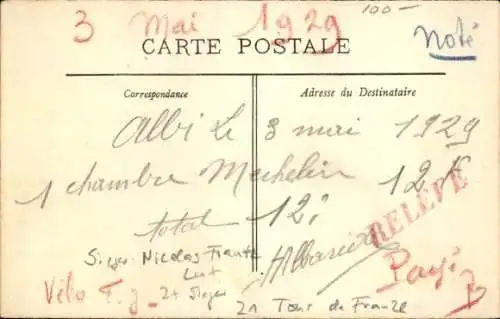 100-
3 Mai 1929
Noté
CARTE POSTALE
Correspondance
Adresse du Destinataire
Albi Le 3 mai 1929
1 chambre Mechelin 12 f
total 12
RELEVÉ
Sieger Nicolas Frantz
Lux
Payé
Vélo T.
2x Sieger
21 Tour de France